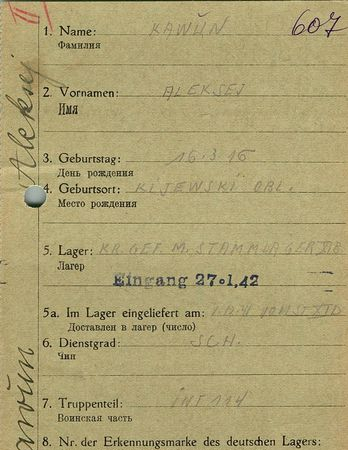 II
607
1. Name: KAWÜN
Фамилия
2. Vornamen: ALEKSEJ
Имя
3. Geburtstag: 16.3.16
День рождения
4. Geburtsort: KIJEWSKI OBL.
Место рождения
5. Lager: KR. GEF. M. STAMMLAGER
Лагер
Eingang 27.1.42
5a. Im Lager eingeliefert am:
Доставлен в лагер (число)
6. Dienstgrad: SCH.
Чин
7. Truppenteil: INF 114
Воинская часть
8. Nr. der Erkennungsmarke des deutschen Lagers:
Aleksej